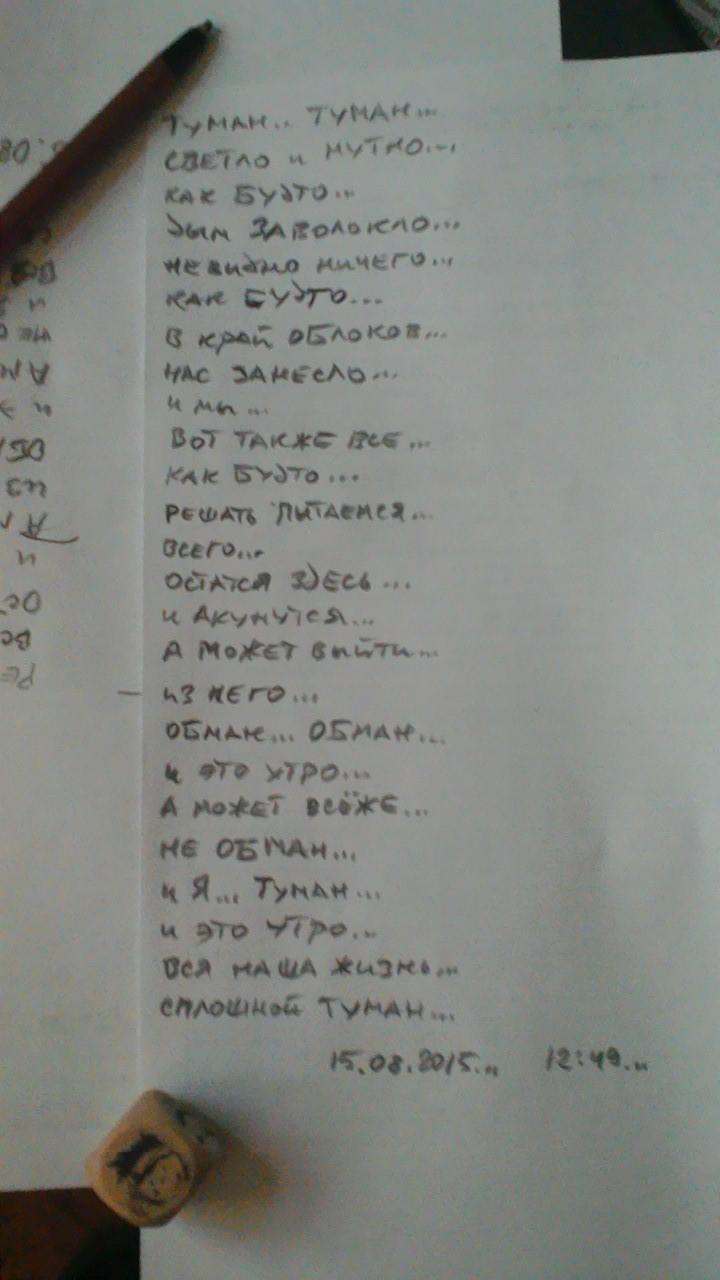 ТУМАН.. ТУМАН...
СВЕТЛО и МУТНО...
КАК БУДТО...
ДЫМ ЗАВОЛОКЛО...
НЕВИДНО НИЧЕГО...
КАК БУДТО...
В КРАЙ ОБЛАКОВ...
НАС ЗАНЕСЛО...
и мы...
ВОТ ТАКЖЕ ВСЕ...
КАК БУДТО...
РЕШАТЬ ПЫТАЕМСЯ...
ВСЕГО...
ОСТАТСЯ ЗДЕСЬ...
и АКУНУТСЯ...
А МОЖЕТ ВЫЙТИ...
ИЗ НЕГО...
ОБМАН... ОБМАН...
и ЭТО УТРО...
А МОЖЕТ ВСЁЖЕ...
НЕ ОБМАН...
и Я... ТУМАН...
и ЭТО УТРО...
ВСЯ НАША ЖИЗНЬ...
СПЛОШНОЙ ТУМАН...
15.08.2015... 12:49...